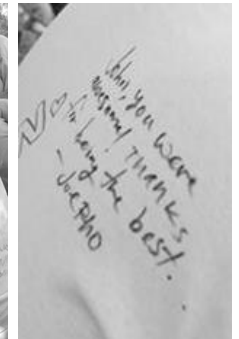 John, you were
awesome! Thanks
for being the best.
- Joe Pho